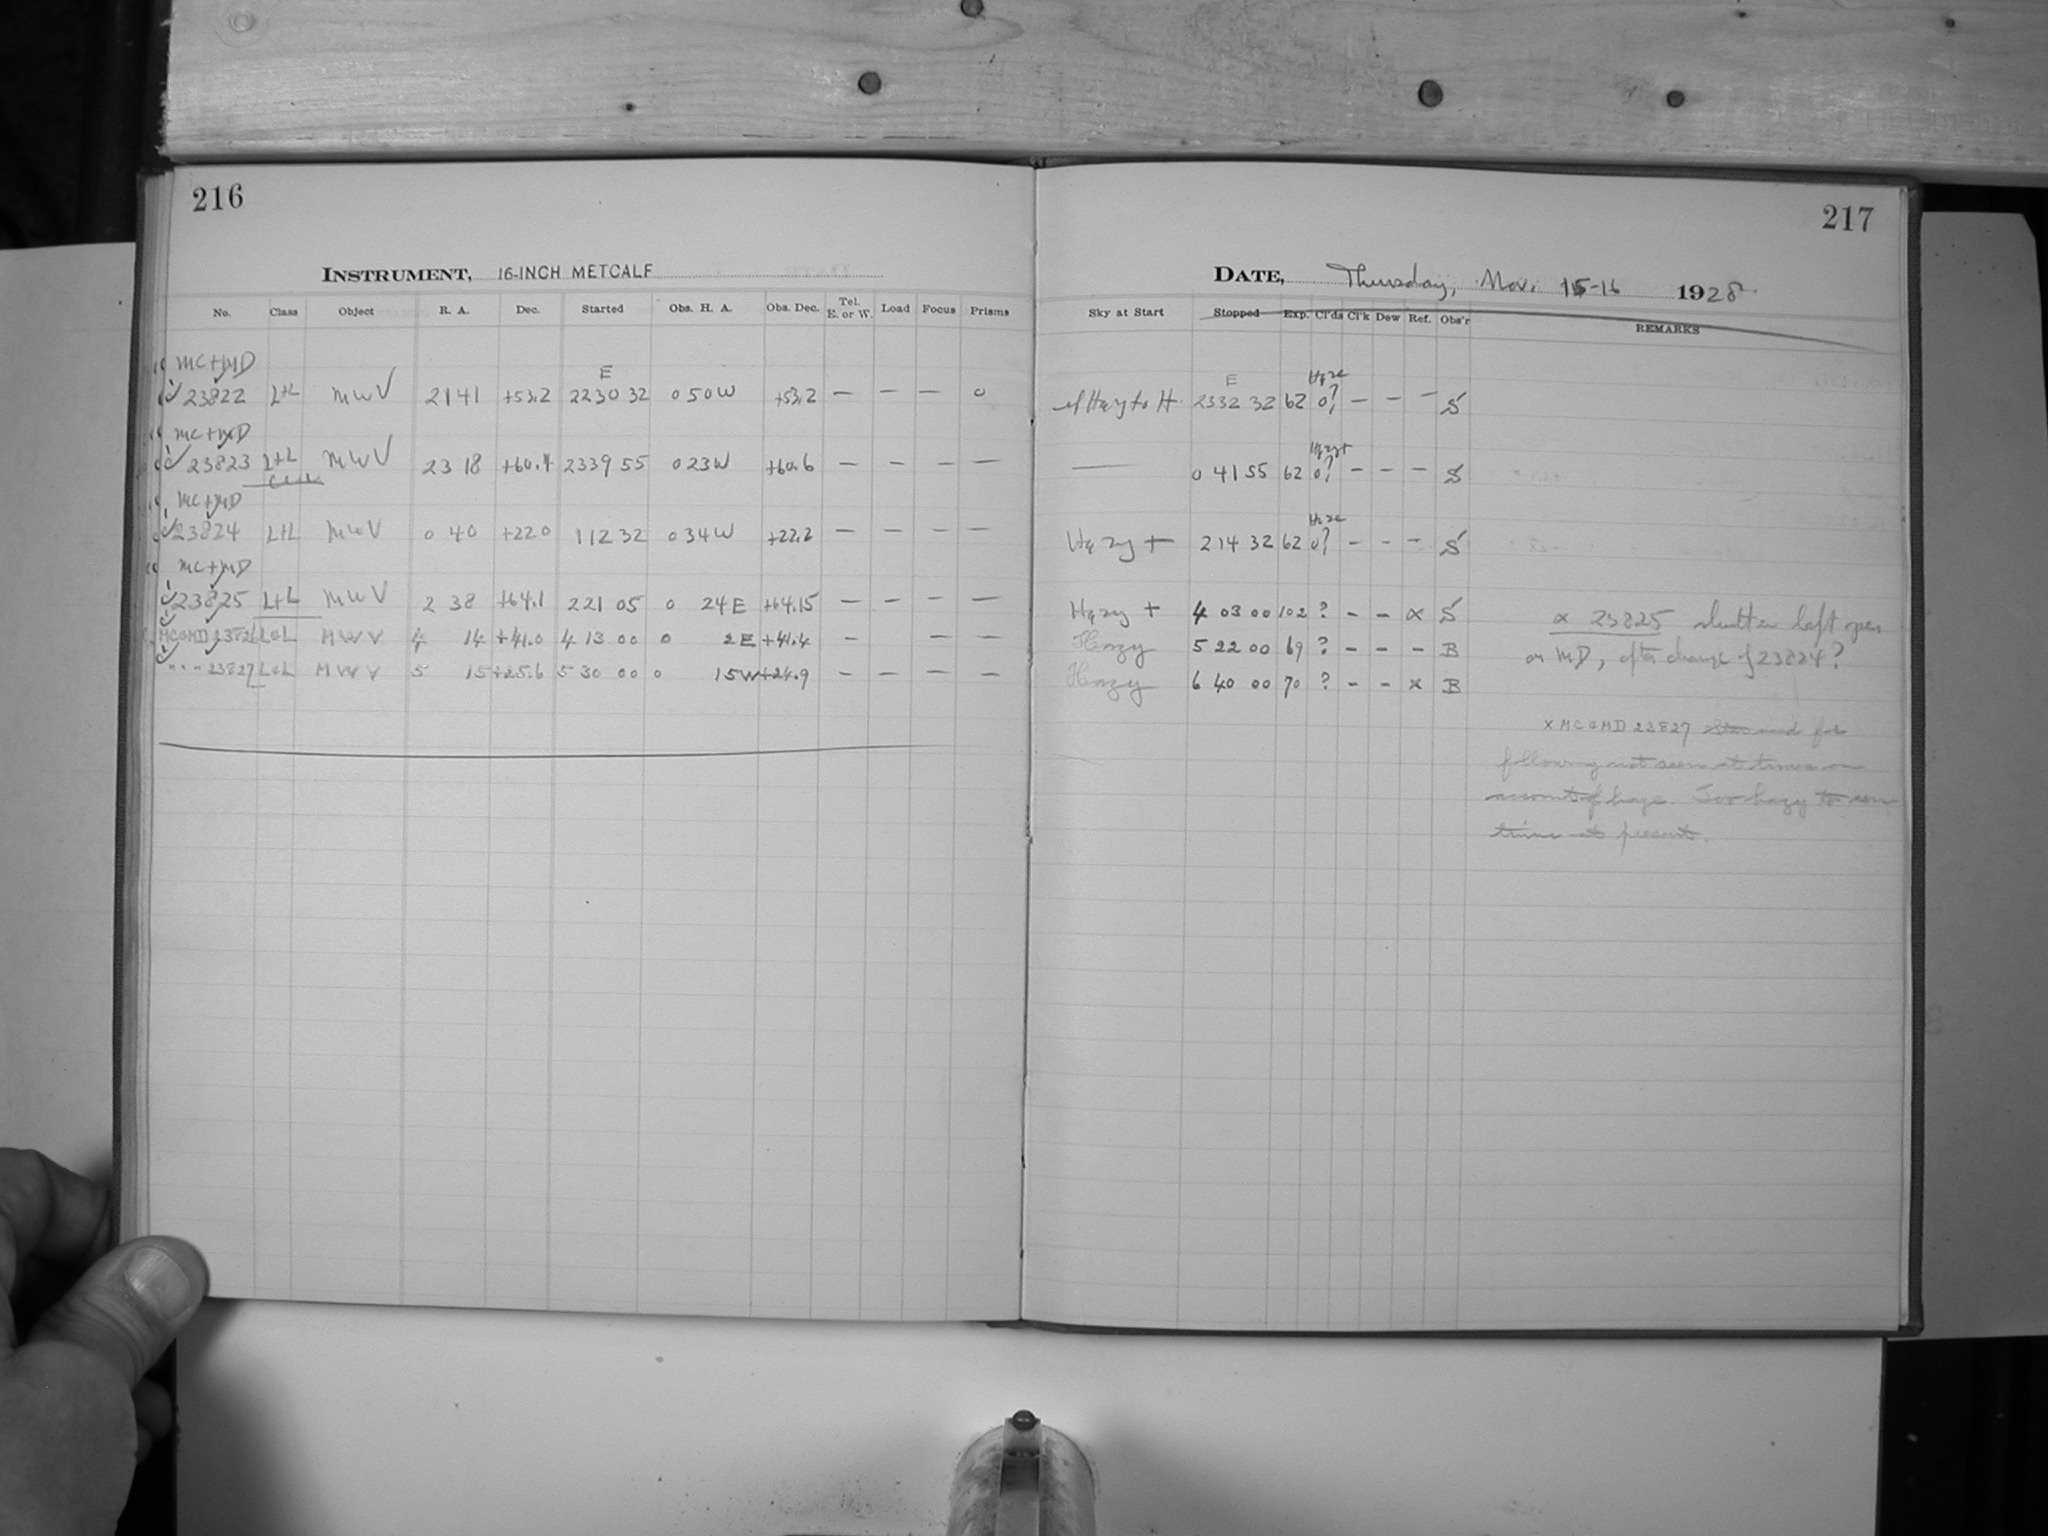 216
INSTRUMENT, 16-INCH METCALF
No. Class Object R. A. Dec. Started Obs. H. A. Obs. Dec. Tel. E. or W. Load Focus Prisms
MC+MD E
23822 L+L MWV 21 41 +53.2 22 30 32 0 50 W +53.2 — — — 0
MC+MD
23823 L+L MWV 23 18 +60.4 23 39 55 0 23 W +60.6 — — — —
MC+MD
23824 L+L MWV 0 40 +22.0 1 12 32 0 34 W +22.2 — — — —
MC+MD
23825 L+L MWV 2 38 +64.1 2 21 05 0 24 E +64.15 — — — —
MC&MD 23826 L&L MWV 4 14 +41.0 4 13 00 0 2 E +41.4 — — —
" " " 23827 L&L MWV 5 15 +25.6 5 30 00 0 15 W +24.9 — — — —
217
DATE, Thursday, Nov. 15-16 1928
Sky at Start Stopped Exp. Cl'ds Cl'k Dew Ref. Obs'r REMARKS
E Haze
23 32 32 62 0? — — — S
0 41 55 62 0? — — — S
Haze
Hazy + 2 14 32 62 0? — — — S
Hazy + 4 03 00 102 ? — — x S x 23825 shutter left open
Hazy 5 22 00 69 ? — — — B on MD, after change of 23824?
Hazy 6 40 00 70 ? — — x B
x MC&MD 23827 Star used for
following not seen at times on
account of haze. Too hazy to con
tinue at present.